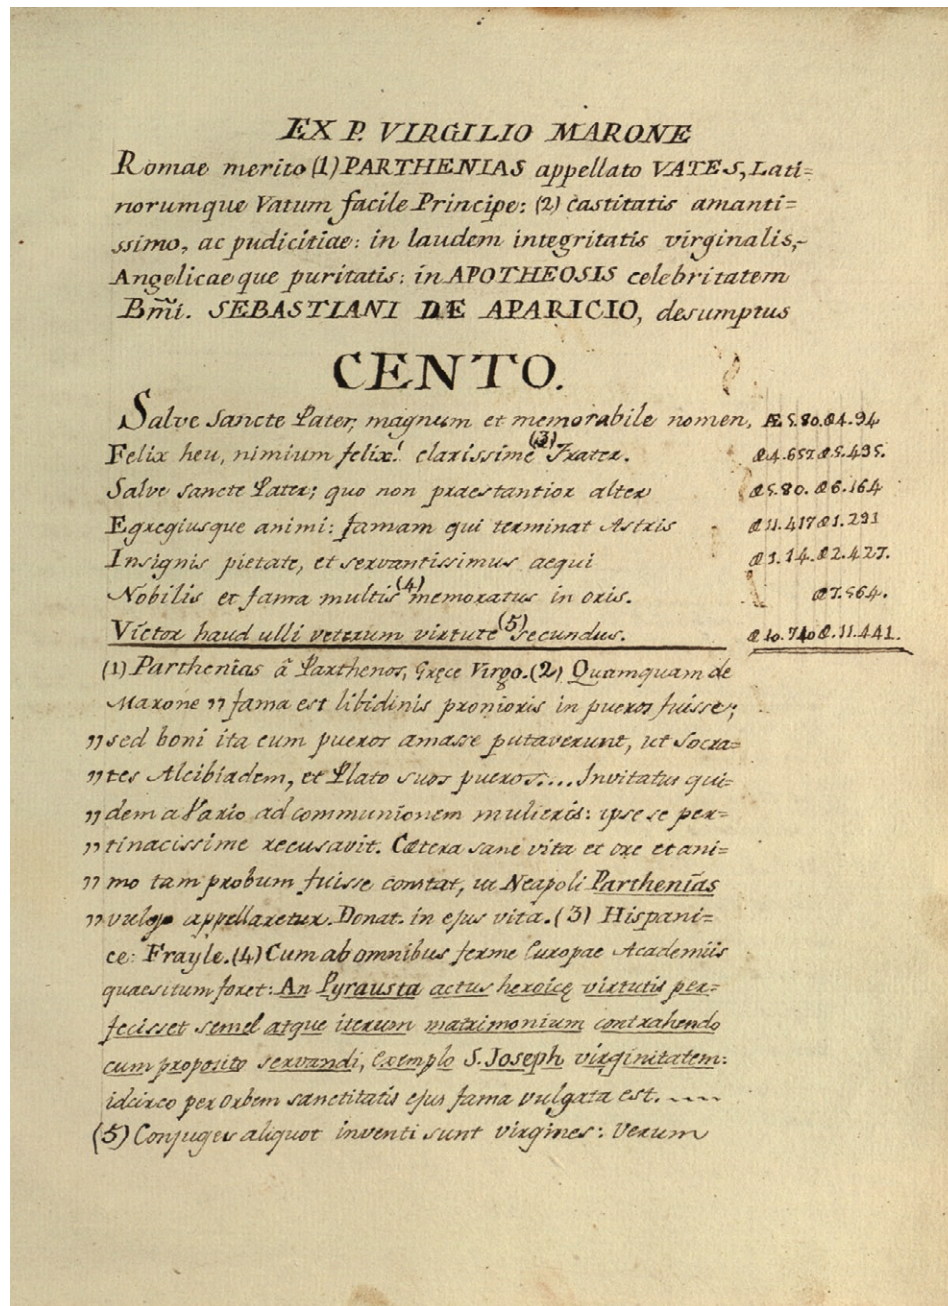 EX P. VIRGILIO MARONE
Romae merito (1) PARTHENIAS appellato VATES, Lati=
norumque Vatum facile Principe: (2) castitatis amanti=
ssimo, ac pudicitiae: in laudem integritatis virginalis,
Angelicaeque puritatis: in APOTHEOSIS celebritatem
Bm̃i. SEBASTIANI DE APARICIO, desumptus
CENTO.
Salve Sancte Pater, magnum et memorabile nomen, Æ 5.80. Æ 4.94
Felix heu, nimium felix! clarissime (3) Frater. Æ 4.657 Æ 5.495.
Salve Sancte Pater; quo non praestantior alter Æ 5.80. Æ 6.164
Egregiusque animi: famam qui terminat Astris Æ 11.417 Æ 1.291
Insignis pietate, et servantissimus aequi Æ 1.14. Æ 2.427.
Nobilis et fama multis (4) memoratus in oris. Æ 7.564.
Victor haud ulli veterum virtute (5) secundus. Æ 10.740 Æ. 11.441.
(1) Parthenias â Parthenos, Gręce Virgo. (2) Quamquam de
Marone " fama est libidinis pronioris in pueros fuisse;
" sed boni ita eum pueros amasse putaverunt, ut Socra=
" tes Alcibiadem, et Plato suos pueros.... Invitatus qui=
" dem a Vario ad communionem mulieris: ipse se per=
" tinacissime recusavit. Cætera sane vita et ore et ani=
" mo tam probum fuisse constat, ut Neapoli Parthenias
" vulgo appellaretur. Donat. in ejus vita. (3) Hispani=
ce: Frayle. (4) Cum ab omnibus ferme Europae Academiis
quaesitum foret: An Pyrausta actus heroicę virtutis per=
fecisset semel atque iterum matrimonium contrahendo
cum proposito servandi, exemplo S. Joseph virginitatem:
idcirco per Orbem sanctitatis ejus fama vulgata est. ----
(5) Conjuges aliquot inventi sunt virgines: Verum